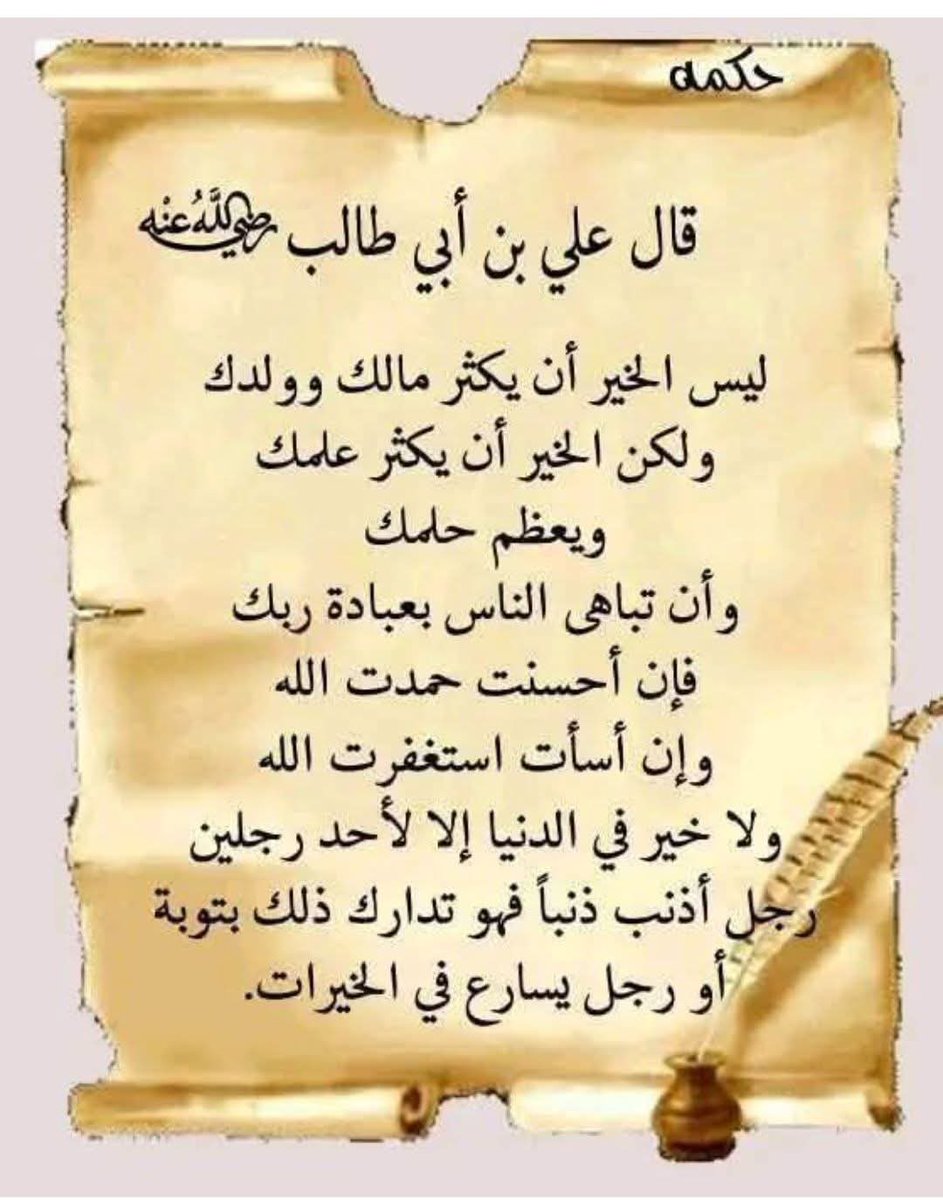 حكمه
قال علي بن أبي طالب رضي الله عنه
ليس الخير أن يكثر مالك وولدك
ولكن الخير أن يكثر علمك
ويعظم حلمك
وأن تباهى الناس بعبادة ربك
فإن أحسنت حمدت الله
وإن أسأت استغفرت الله
ولا خير في الدنيا إلا لأحد رجلين
رجل أذنب ذنباً فهو تدارك ذلك بتوبة
أو رجل يسارع في الخيرات.